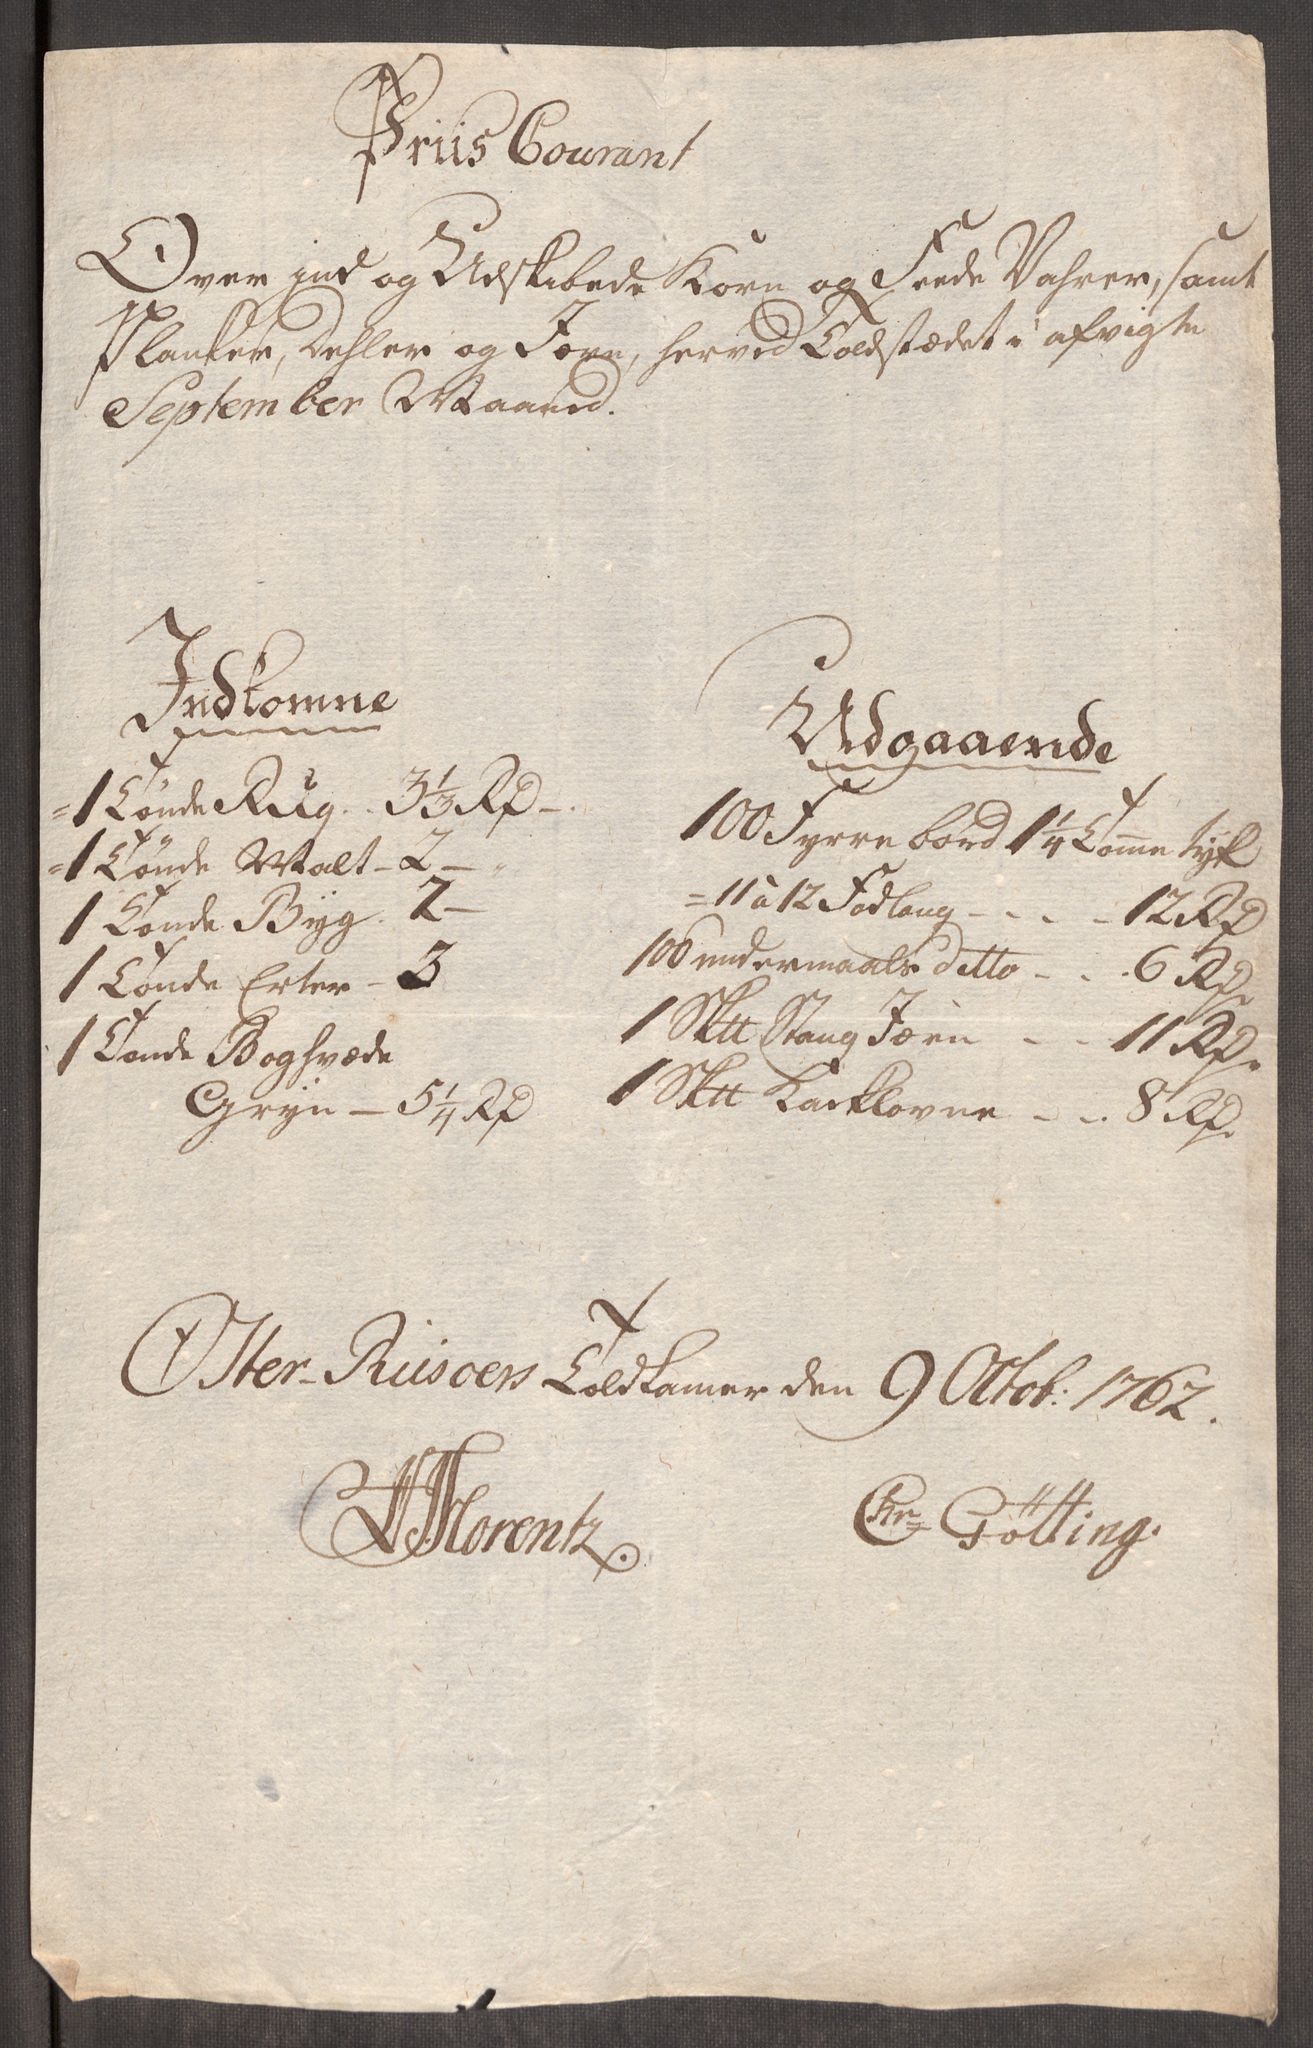 Priis Courant
Over ind og Udskibede Korn og Feede Vahrer, samt
Planker, Dehler og Jern, herved Toldstædet i afvigte
September Maaned.
Indkomne
1 Tönde Rug .. 3 1/3 Rd -
1 Tönde Malt - 2 -
1 Tönde Byg . 2 -
1 Tönde Erter - 3
1 Tönde Boghvede
Gryn - 5 1/4 Rd
Udgaaende
100 Fyrre bord 1 1/4 Tom̅e tyk
= 11 à 12 Fod lang - . . - 12 Rd
100 undermaals ditto - . . 6 Rd
1 Sktt Stang Jærn . - 11 Rd
1 Sktt Kacklovne - .. 8 Rd
Öster-Riisöers Toldkamer den 9 Octob: 1762.
Lorentz.
Chr Götting.